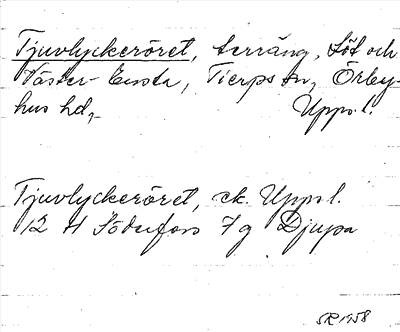 Tjuvlyckeröret, terräng, Löt och
Väster-Ensta, Tierps sn, Örby-
hus hd,
Upps. l.
Tjuvlyckeröret, ek. Upps l.
12 H Söderfors 7 g Djupa
SR 1958